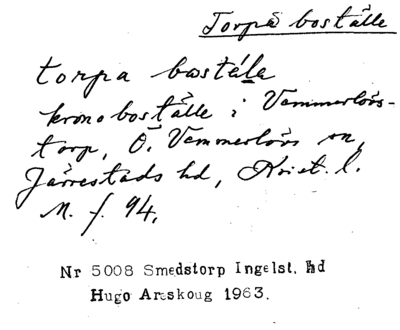 Torpa boställe
torpa bastéle
kronoboställe i Vemmerlövs-
torp, Ö. Vemmerlövs sn,
Järrestads hd, Krist. l.
M. f. 94.
Nr 5008 Smedstorp Ingelst. hd
Hugo Areskoug 1963.